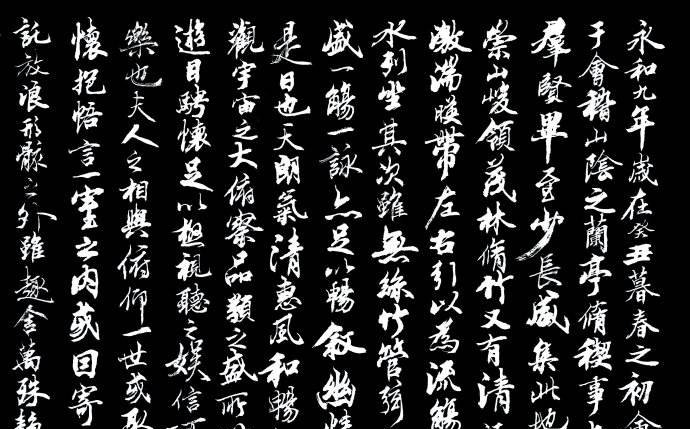 永和九年歲在癸丑暮春之初會
于會稽山陰之蘭亭脩稧事
羣賢畢至少長咸集此地
崇山峻領茂林脩竹又有清
激湍暎帶左右引以為流觴
水列坐其次雖無絲竹管弦
盛一觴一詠亦足以暢敘幽情
是日也天朗氣清惠風和暢
觀宇宙之大俯察品類之盛所
遊目騁懷足以極視聽之娛信
樂也夫人之相與俯仰一世或取
懷抱悟言一室之內或因寄
託放浪形骸之外雖趣舍萬殊靜